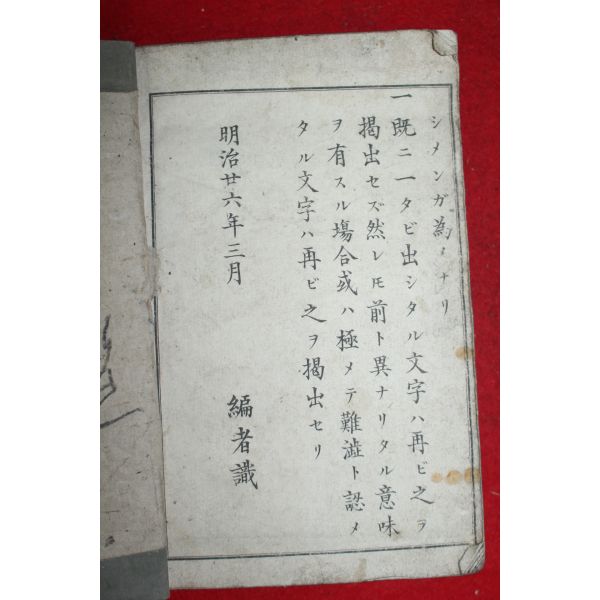 シメンガ為メナリ
一既ニ一タビ出シタル文字ハ再ビ之ヲ
掲出セズ然レ𪜈前ト異ナリタル意味
ヲ有スル場合或ハ極メテ難澁ト認メ
タル文字ハ再ビ之ヲ掲出セリ
明治廿六年三月
編者識